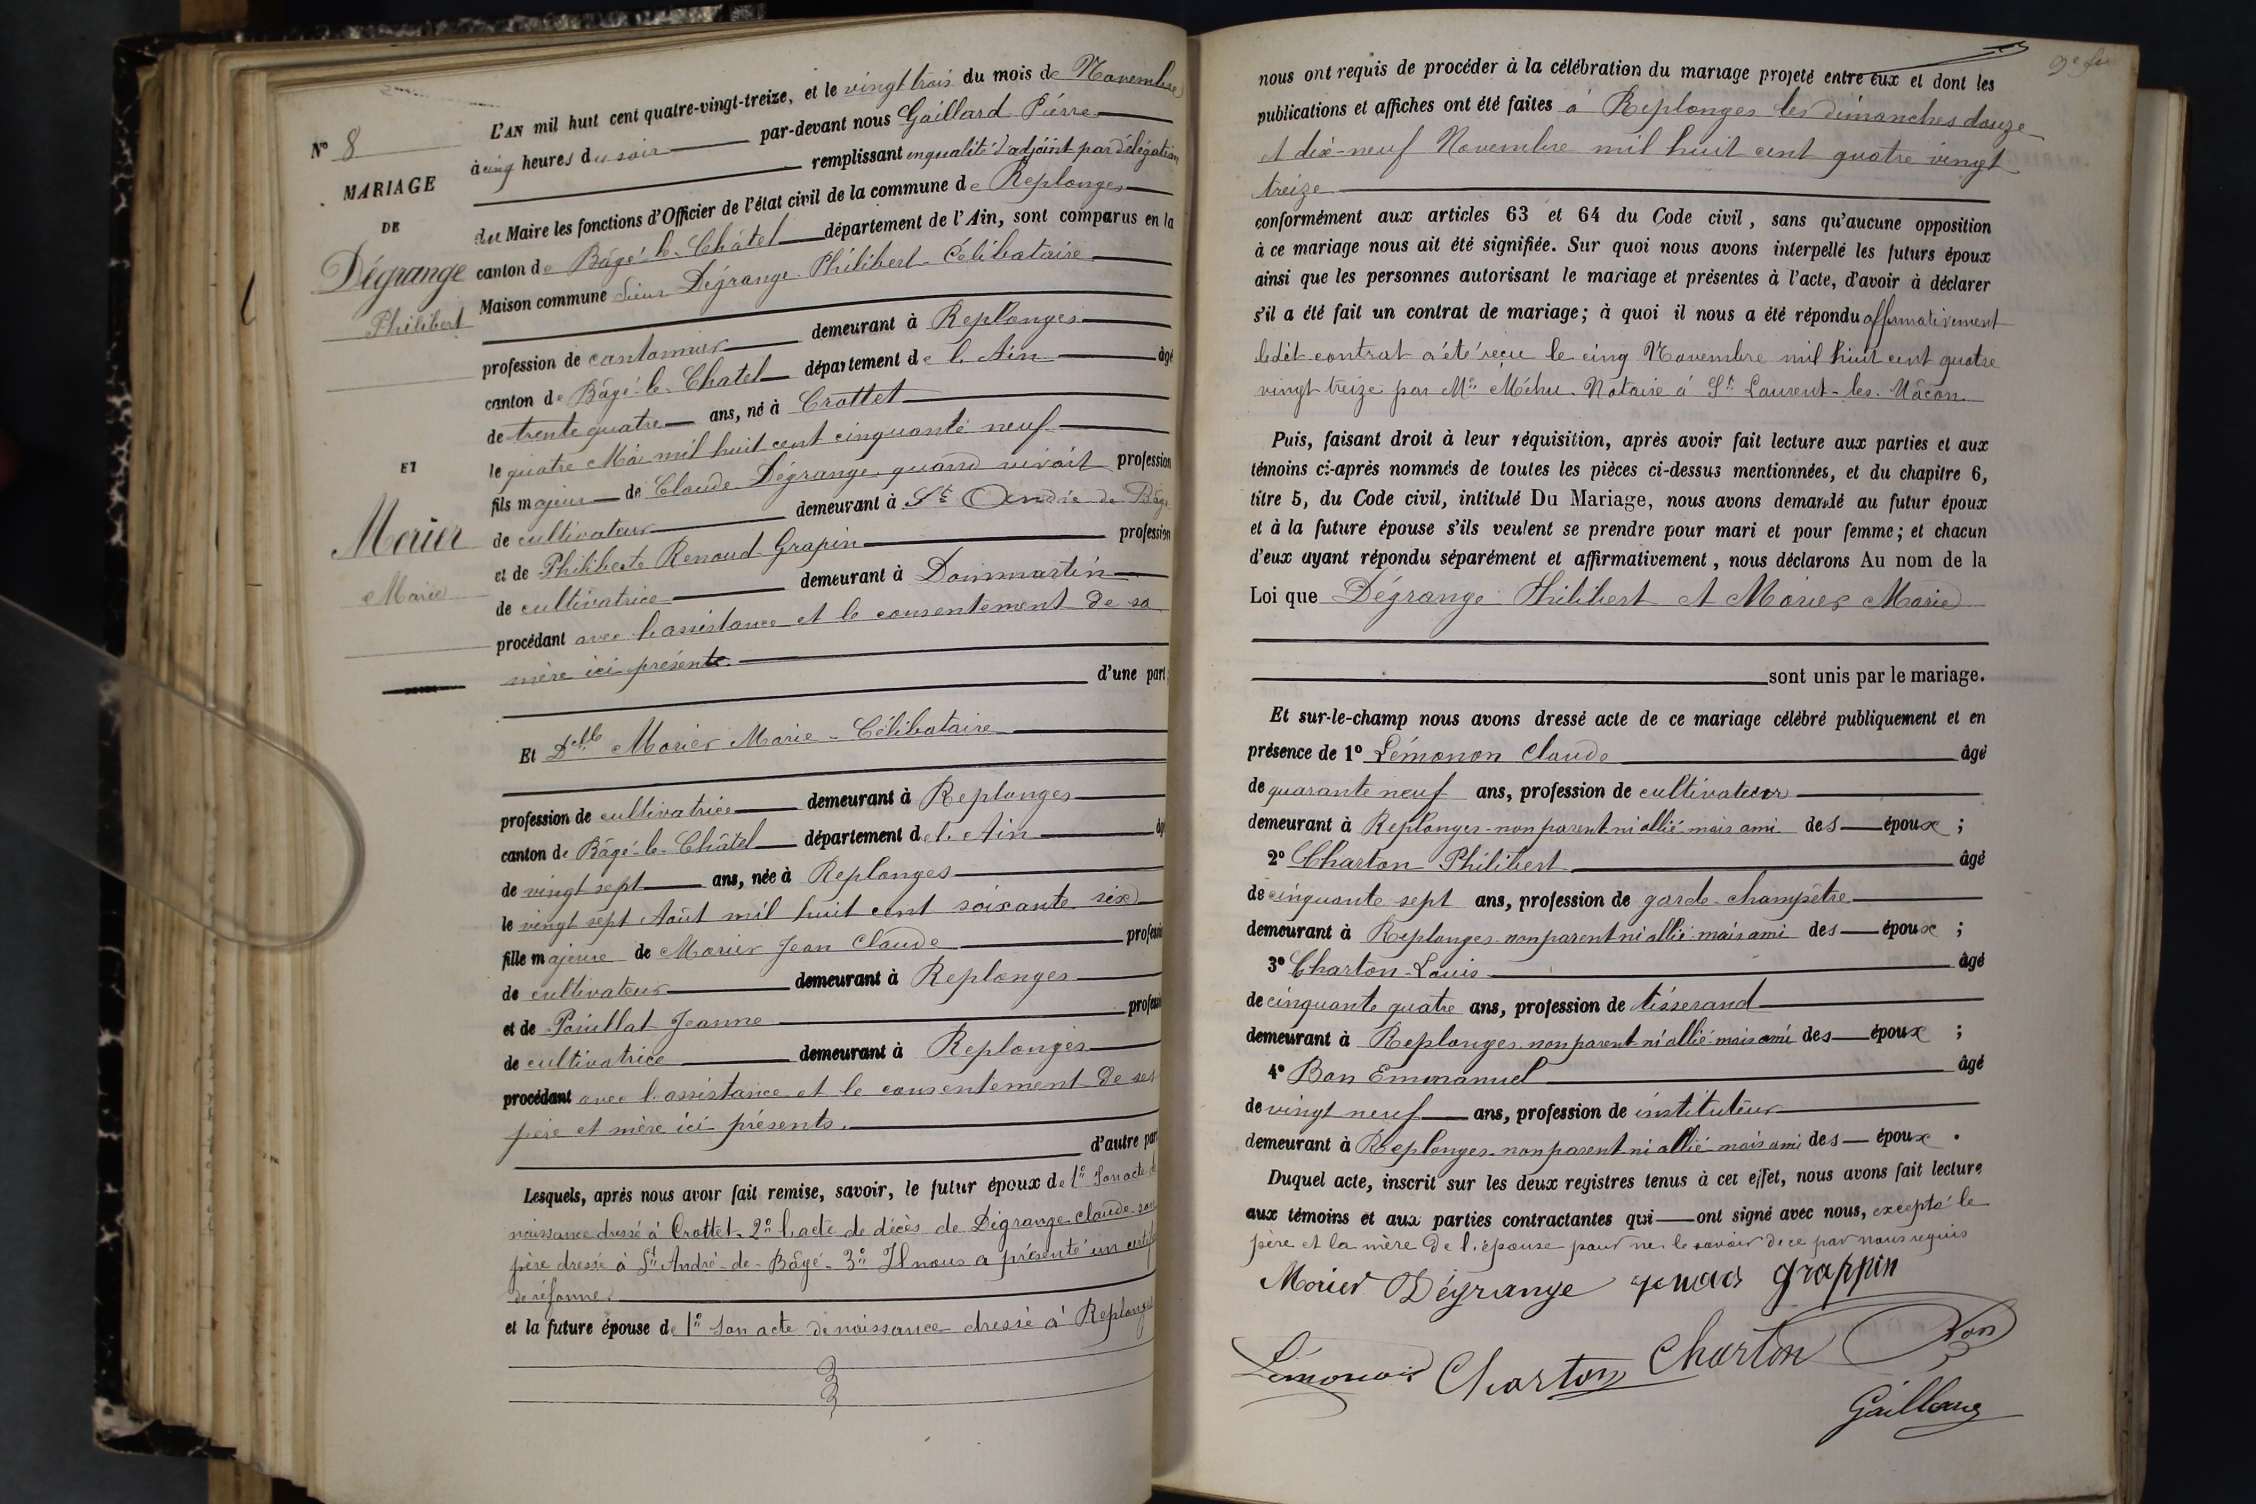 N° 8
MARIAGE
DE
Dégrange
Philibert
ET
Morier
Marie
L'AN mil huit cent quatre-vingt-treize, et le vingt trois du mois de Novembre
à cinq heures du soir par-devant nous Gaillard Pierre
remplissant en qualité d'adjoint par délégation
du Maire les fonctions d'Officier de l'état civil de la commune de Replonges
canton de Bâgé-le-Châtel département de l'Ain, sont comparus en la
Maison commune Sieur Dégrange Philibert Célibataire
profession de cantonnier demeurant à Replonges
canton de Bâgé-le-Chatel département de l'Ain âgé
de trente quatre ans, né à Crottet
le quatre Mai mil huit cent cinquante neuf
fils majeur de Claude Dégrange quand vivait profession
de cultivateur demeurant à St André de Bâgé
et de Philiberte Renoud Grapin profession
de cultivatrice demeurant à Dommartin
procédant avec l'assistance et le consentement de sa
mère ici présente.
d'une part;
Et Delle Morier Marie - Célibataire
profession de cultivatrice demeurant à Replonges
canton de Bâgé-le-Châtel département de l'Ain âgé
de vingt sept ans, née à Replonges
le vingt sept Août mil huit cent soixante six
fille majeure de Morier Jean Claude profession
de cultivateur demeurant à Replonges
et de Jeanne profession
de cultivatrice demeurant à Replonges
procédant avec l'assistance et le consentement de ses
père et mère ici présents.
d'autre part
Lesquels, après nous avoir fait remise, savoir, le futur époux de 1° Son acte de
naissance dressé à Crottet. 2° l'acte de décès de Dégrange Claude son
père dressé à St André-de-Bâgé. 3° Il nous a présenté un certificat
de réforme.
et la future épouse de 1° Son acte de naissance dressé à Replonges
nous ont requis de procéder à la célébration du mariage projeté entre eux et dont les
publications et affiches ont été faites à Replonges les dimanches douze
et dix-neuf Novembre mil huit cent quatre vingt
treize
conformément aux articles 63 et 64 du Code civil, sans qu'aucune opposition
à ce mariage nous ait été signifiée. Sur quoi nous avons interpellé les futurs époux
ainsi que les personnes autorisant le mariage et présentes à l'acte, d'avoir à déclarer
s'il a été fait un contrat de mariage; à quoi il nous a été répondu affirmativement
ledit contrat a été reçu le cinq Novembre mil huit cent quatre
vingt treize par Me Méhu. Notaire à St Laurent-les-Mâcon
Puis, faisant droit à leur réquisition, après avoir fait lecture aux parties et aux
témoins ci-après nommés de toutes les pièces ci-dessus mentionnées, et du chapitre 6,
titre 5, du Code civil, intitulé Du Mariage, nous avons demandé au futur époux
et à la future épouse s'ils veulent se prendre pour mari et pour femme; et chacun
d'eux ayant répondu séparément et affirmativement, nous déclarons Au nom de la
Loi que Dégrange Philibert et Morier Marie
sont unis par le mariage.
Et sur-le-champ nous avons dressé acte de ce mariage célébré publiquement et en
présence de 1° Lémonon Claude âgé
de quarante neuf ans, profession de cultivateur
demeurant à Replonges non parent ni allié mais ami des époux;
2° Charton Philibert âgé
de cinquante sept ans, profession de garde-champêtre
demeurant à Replonges non parent ni allié mais ami des époux;
3° Charton Louis âgé
de cinquante quatre ans, profession de tisserand
demeurant à Replonges non parent ni allié mais ami des époux;
4° Bon Emmanuel âgé
de vingt neuf ans, profession de instituteur
demeurant à Replonges non parent ni allié mais ami des époux.
Duquel acte, inscrit sur les deux registres tenus à cet effet, nous avons fait lecture
aux témoins et aux parties contractantes qui ont signé avec nous, excepté le
père et la mère de l'épouse pour ne le savoir de ce par nous requis
Morier Dégrange grappin
Lémonon Charton Charton Bon
Gaillard